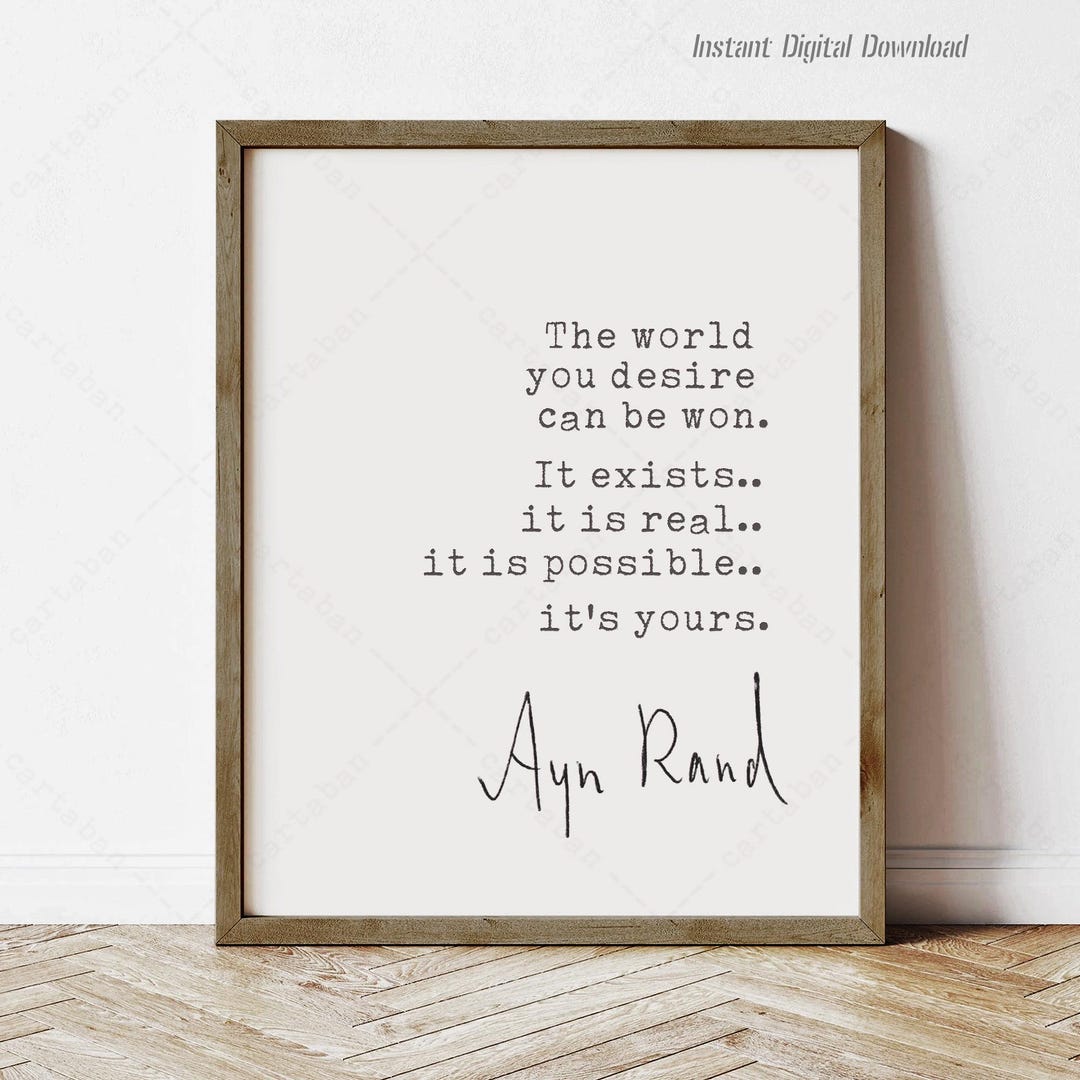 Instant Digital Download
The world
you desire
can be won.
It exists..
it is real..
it is possible..
it's yours.
Ayn Rand
cartaban